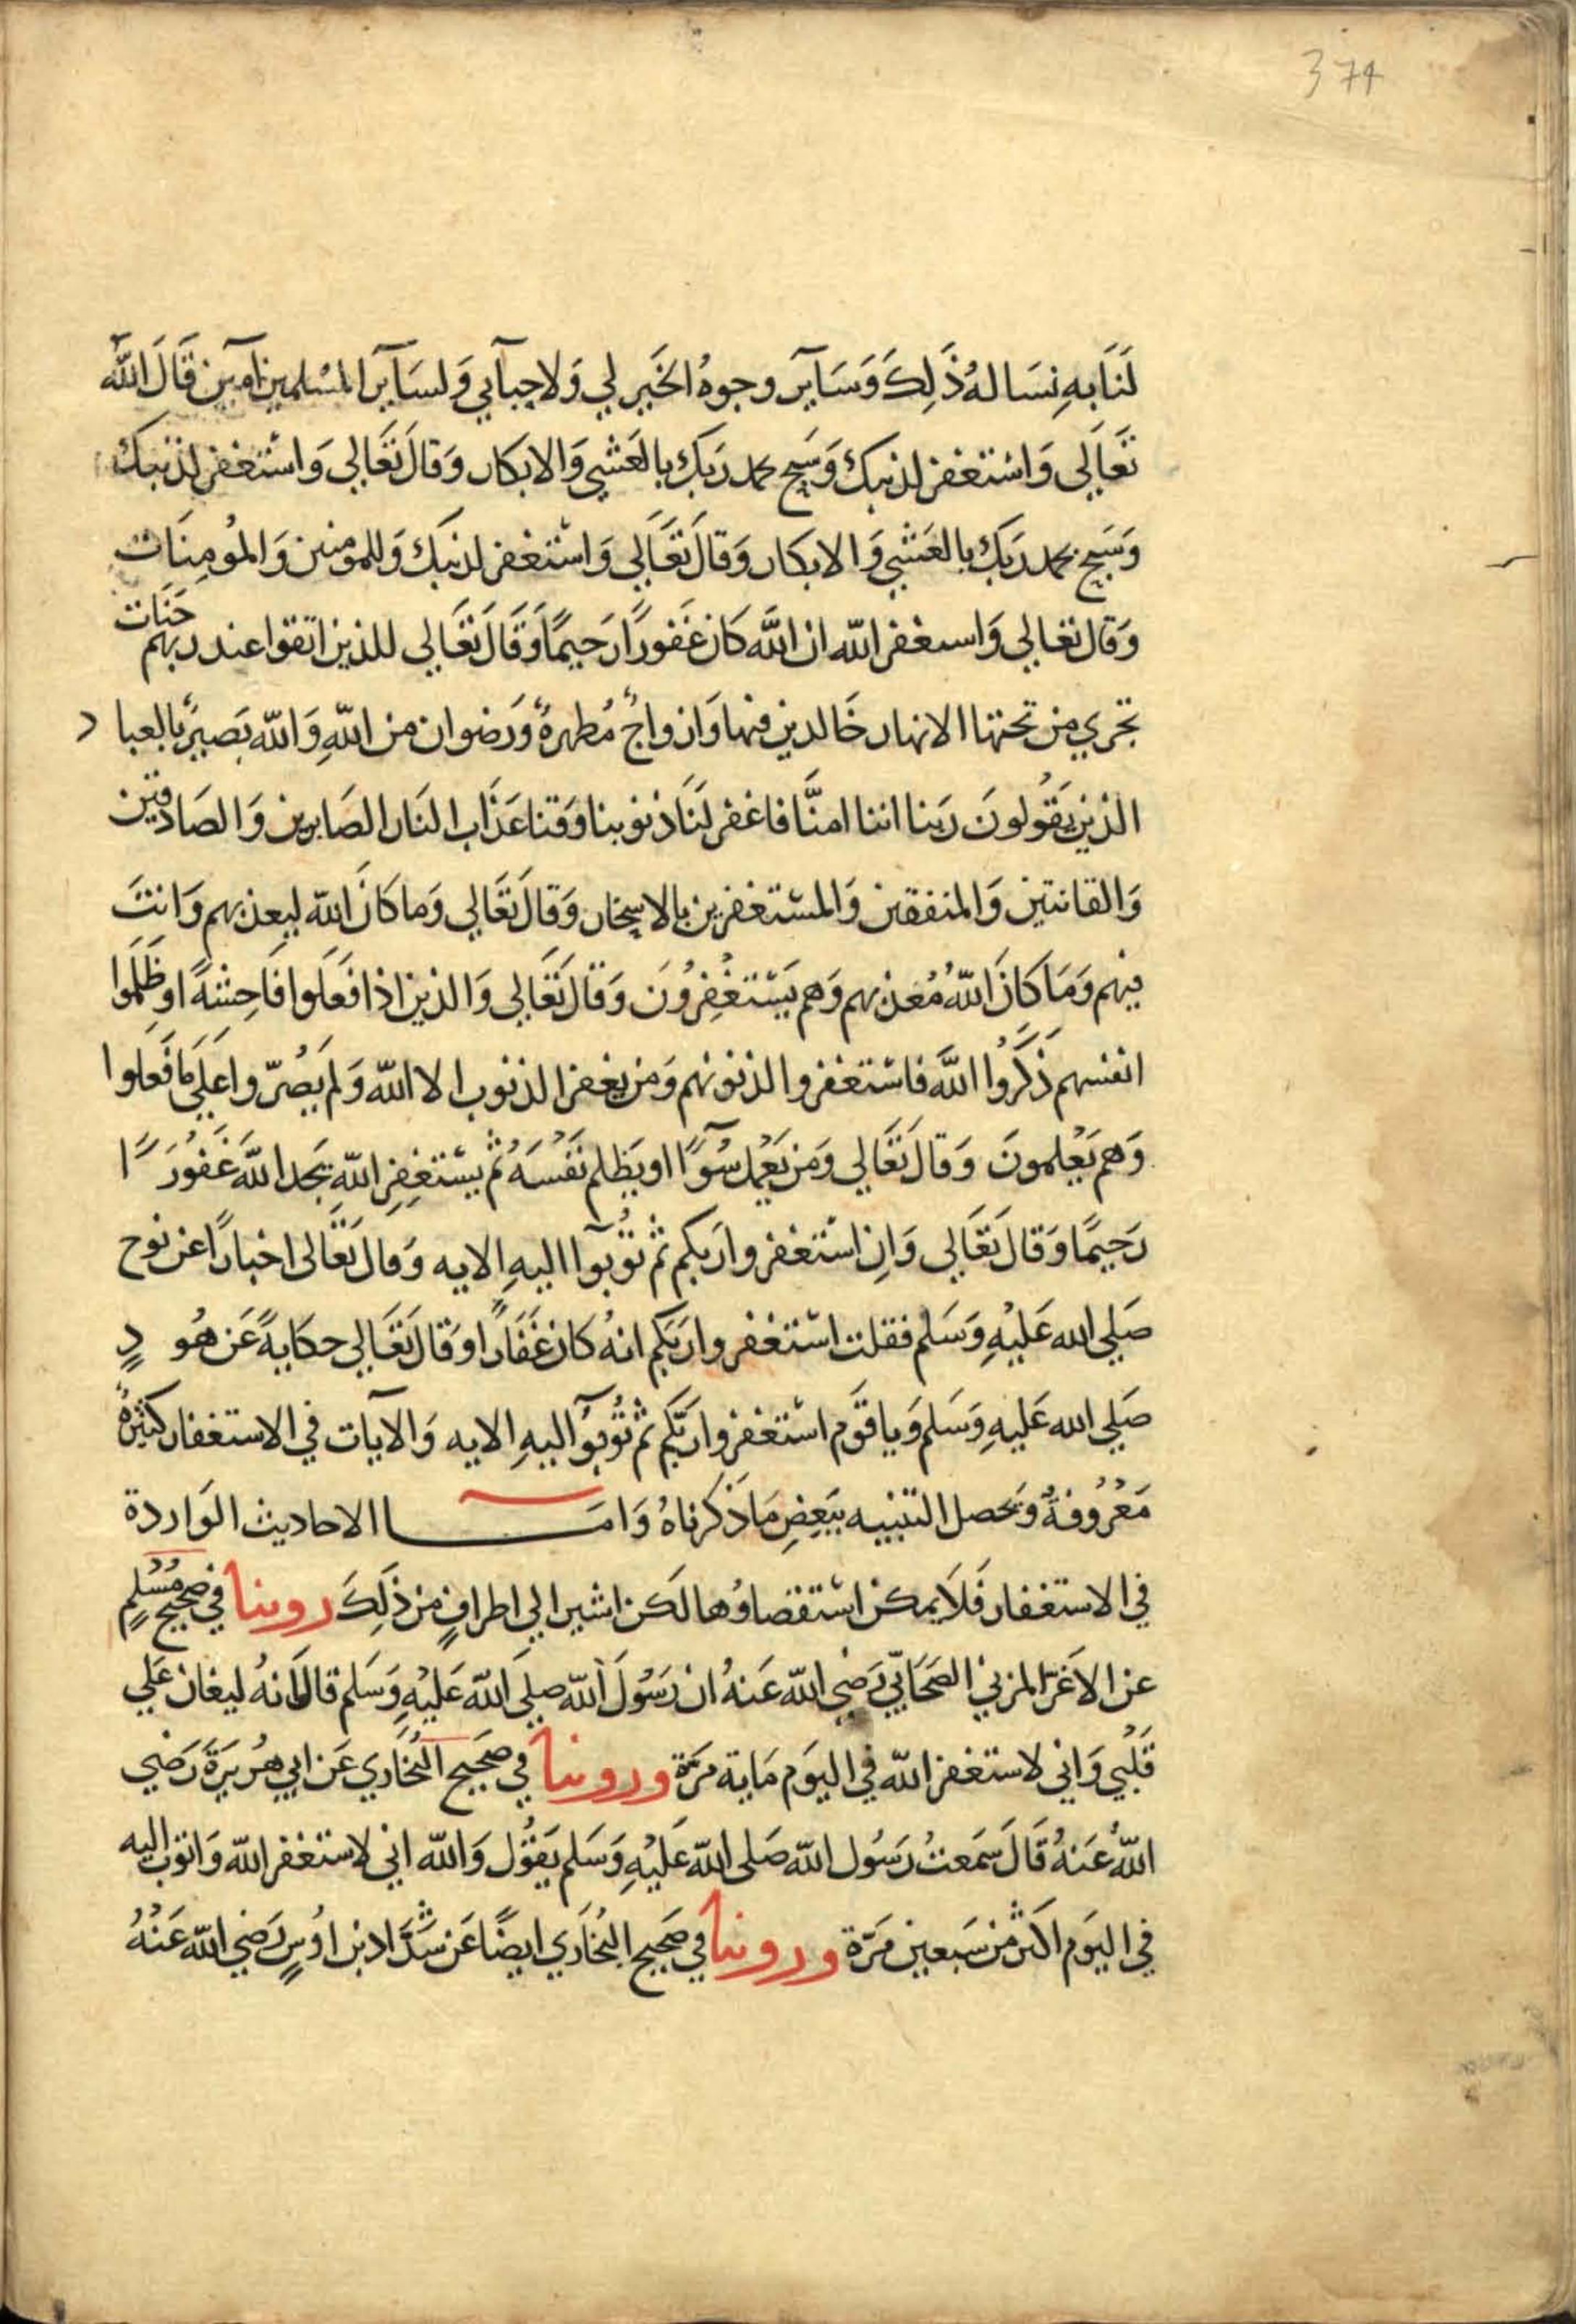 374
لَنَا بِهِ نسَاله ذَلِكَ وَسَايَر وجوهُ الخَيرِ لي وَلاحِبآبي وَلسَآيَر المسْلمِين آمِين قَالَ اللّه
تَعَالَى وَاسْتغفر لذنبك وَسَبِح بحمد رَبك بالعَشِي وَالابكار وَقالَ تَعَالي وَاسْتغفر لذنبك
وَسَبِح بحمد رَبك بالعَشي وَالابكار وَقالَ تَعَالي وَاسْتغفر لذنبك وَللمومنين وَالمُومِنَات
وَقال تعالي وَاستغفر اللّه ان اللَّه كَان غَفورًا رَحيمًا وَقَالَ تَعَالي للذين اتقوا عند ربهم جَنَات
تجري من تحتها الانهار خَالدين فيها وَازواجٌ مُطهرةٌ وَرضوان من اللّهِ وَاللّه بَصيرٌ بالعباد
الذين يَقُولونَ رَبنا اننا امنَّا فاغفر لَنَا ذنوبنا وَقنا عَذَاب النار الصَابرين وَالصَادقين
وَالقانتين وَالمنفقين وَالمسْتغفرين بالاسحار وَقالَ تَعَالي وَما كَانَ اللّه ليعذبهم وَانتَ
فيهم وَمَا كَانَ اللّهُ مُعذبهم وَهم يَسْتغْفِرُونَ وَقالَ تَعَالي وَالذين اذا فَعَلوا فَاحِشةً او ظَلَمُوا
انفسهم ذَكَرُوا اللَّه فاسْتغفروا لذنوبهم وَمن يغفر الذنوب الا اللّه وَلم يَصُرّوا عَلَي مَا فَعَلوا
وَهم يَعْلمونَ وَقالَ تَعَالي وَمَن يَعْمل سُوًا او يَظلم نَفْسَهُ ثُم يسْتغفِر اللّه يَجد اللَّه غَفُورًا
رَحيمًا وَقالَ تَعَالي وَانِ اسْتغفروا رَبكم ثم تُوبوا اليهِ الايه وَقالَ تَعَالى اخبارًا عن نوح
صَلي الله عَليْهِ وَسَلم فقلت اسْتغفروا رَبكم انهُ كان غَفَارًا وَقالَ تَعَالي حكايةً عَن هُودٍ
صَلي الله عَليهِ وَسَلم وَيا قَوم اسْتغفروا رَبَّكم ثُم تُوبُوآ اليهِ الايه وَالآيات في الاستغفار كثيرةٌ
مَعْرُوفةٌ وَيحصل التنبيه ببَعضِ مَا ذَكرناهُ وَامَا الاحاديث الوَاردة
في الاستغفار فَلَا يمكن اسْتقصاوُها لَكن اشير الي اطرافٍ من ذَلِكَ روينا في صَحيح مُسْلمٍ
عن الاغَرّ المزني الصَحَابيّ رَضِي اللّه عَنهُ ان رَسُولَ اللّه صلَى اللّه عَليْهِ وَسَلم قالَ انهُ ليغان عَلي
قَلْبي وَاني لاستغفر اللّه في اليوَم مَاية مَرّة وروينا في صَحَيح البُخَاري عَن ابي هُريَرَةَ رَضي
اللّهُ عَنهُ قَالَ سَمَعتُ رَسُول اللّه صَلى اللّه عَليْهِ وَسَلم يَقُول وَاللّه اني لاستغفر اللّه وَاتوب اليه
في اليَوم اكثر من سَبعين مَرّة وروينا في صَحَيح البُخَاري ايضًا عَن شَدَّاد بن اوْسٍ رَضي اللّه عَنْهُ